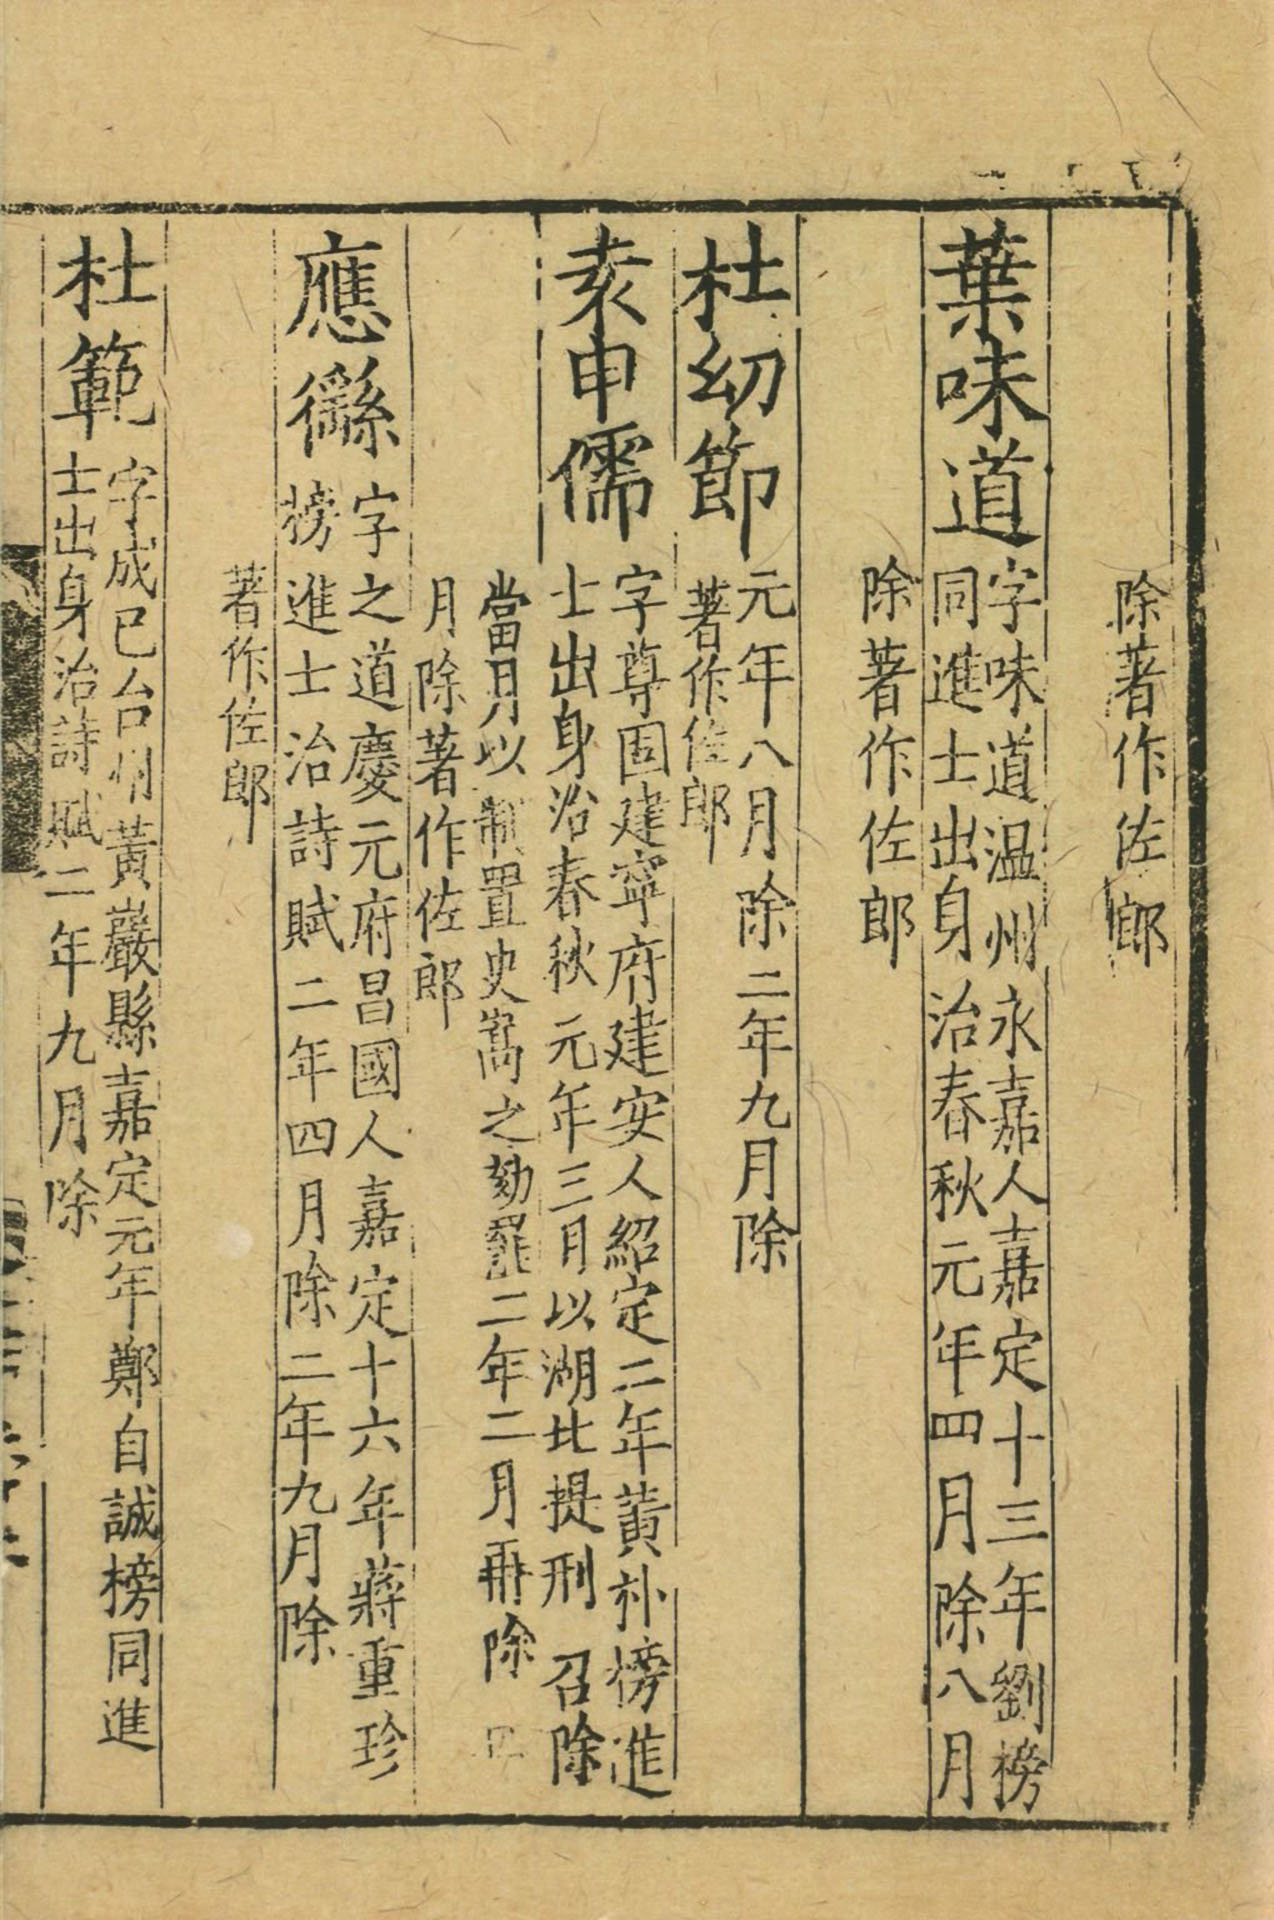 除著作佐郎
葉味道
字味道温州永嘉人嘉定十三年劉榜
同進士出身治春秋元年四月除八月
除著作佐郎
杜幼節
元年八月除二年九月除
著作佐郎
袁申儒
字尊固建寧府建安人紹定二年黄朴榜進
士出身治春秋元年三月以湖北提刑召除
當月以制置史嵩之劾罷二年二月再除四
月除著作佐郎
應㒡
字之道慶元府昌國人嘉定十六年蔣重珍
榜進士治詩賦二年四月除二年九月除
著作佐郎
杜範
字成已台州黃巖縣嘉定元年鄭自誠榜同進
士出身治詩賦二年九月除